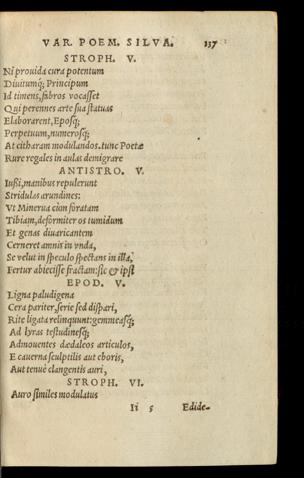 VAR. POEM. SILVA. 137
STROPH. V.
Ni prouida cura potentum
Diuitumq́; Principum
Id timens, fabros vocasset
Qui perennes arte sua statuas
Elaborarent, Eposq́;
Perpetuum, numerosq́;
At citharam modulandos. tunc Poetæ
Rure regales in aulas demigrare
ANTISTRO. V.
Iussi, manibus repulerunt
Stridulas arundines:
Vt Minerua cùm foratam
Tibiam, deformiter os tumidum
Et genas diuaricantem
Cerneret amnis in vnda,
Se velut in speculo spectans in illa,
Fertur abiecisse fractam: sic & ipsi
EPOD. V.
Ligna paludigena
Cera pariter, serie sed dispari,
Rite ligata relinquunt: gemmeasq́;
Ad lyras testudinesq́;
Admouentes dædaleos articulos,
E cauerna sculptilis aut eboris,
Aut tenuè clangentis auri,
STROPH. VI.
Auro similes modulatus
Ii 5 Edide-